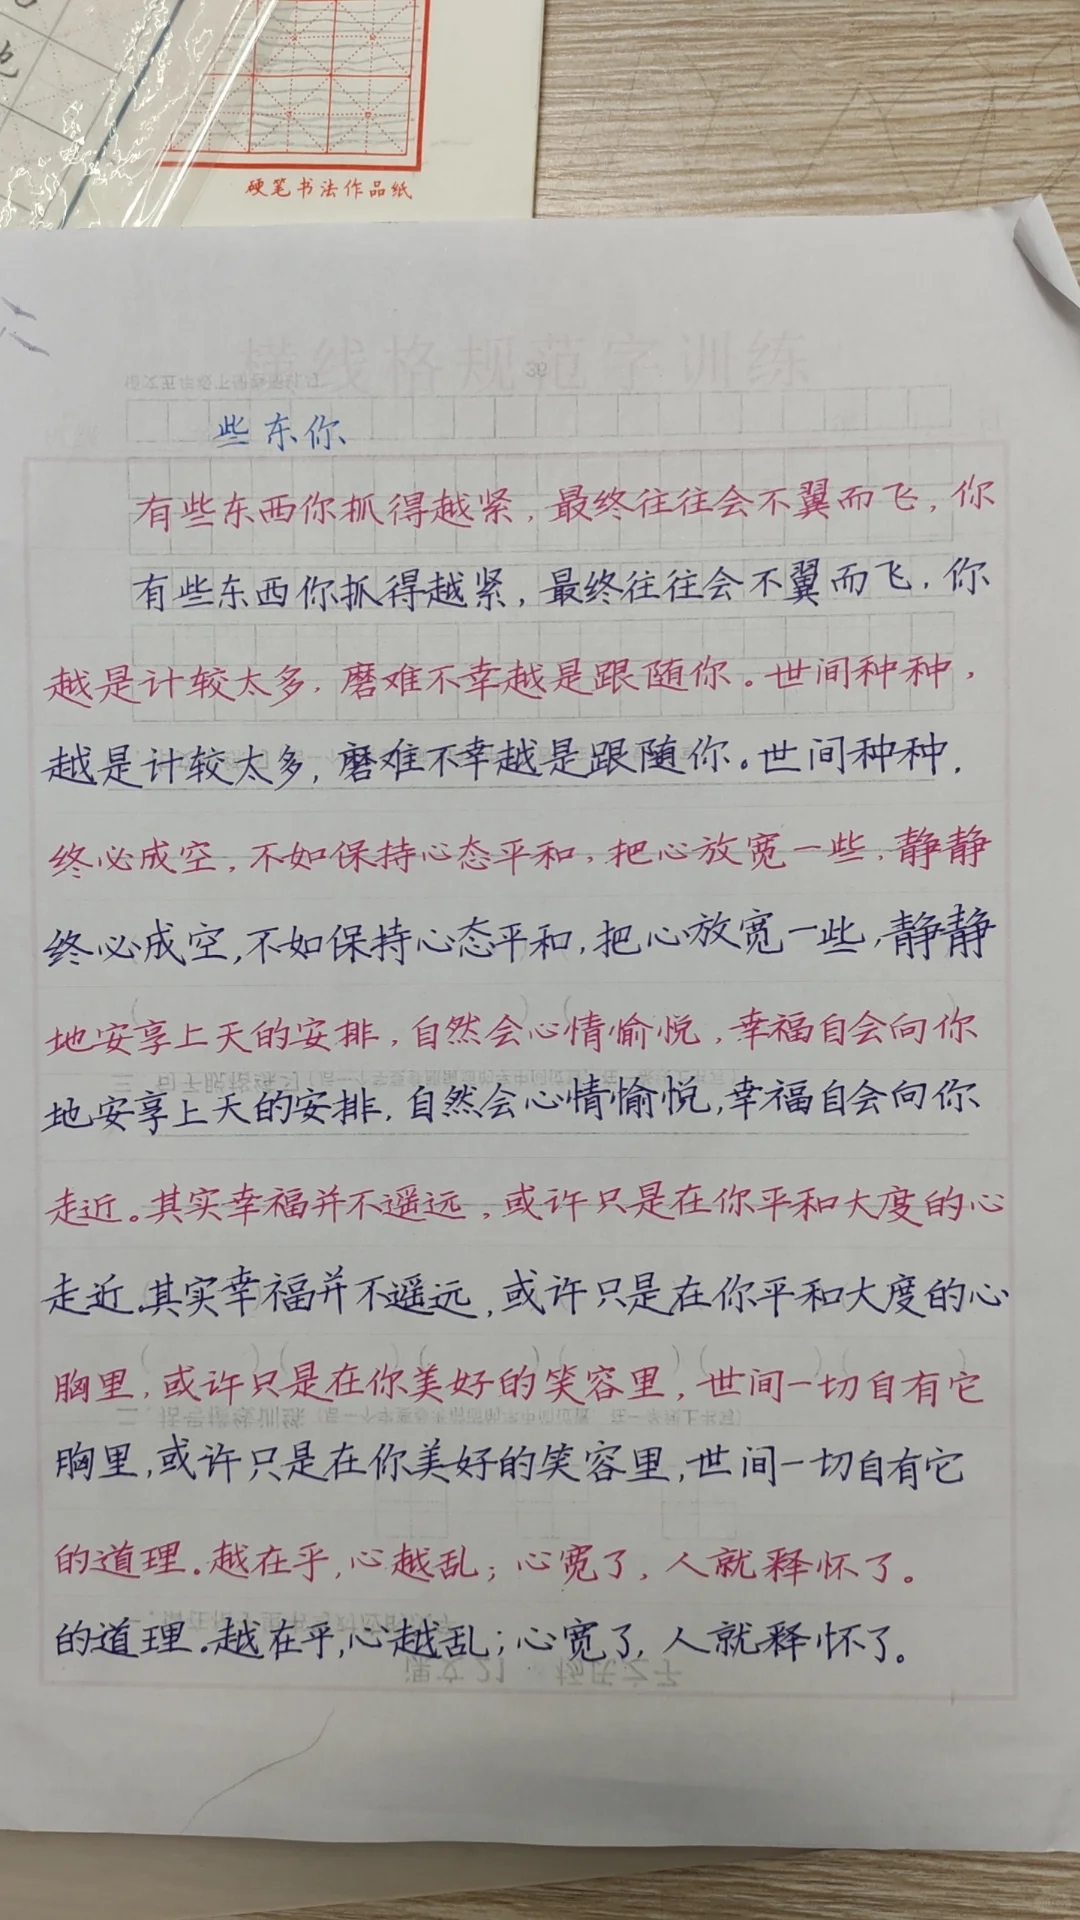 也
硬笔书法作品纸
横线格规范字训练
39
些东你
有些东西你抓得越紧，最终往往会不翼而飞，你
有些东西你抓得越紧，最终往往会不翼而飞，你
越是计较太多，磨难不幸越是跟随你。世间种种，
越是计较太多，磨难不幸越是跟随你。世间种种，
终必成空，不如保持心态平和，把心放宽一些，静静
终必成空，不如保持心态平和，把心放宽一些，静静
地安享上天的安排，自然会心情愉悦，幸福自会向你
地安享上天的安排，自然会心情愉悦，幸福自会向你
走近。其实幸福并不遥远，或许只是在你平和大度的心
走近。其实幸福并不遥远，或许只是在你平和大度的心
胸里，或许只是在你美好的笑容里，世间一切自有它
胸里，或许只是在你美好的笑容里，世间一切自有它
的道理。越在乎，心越乱；心宽了，人就释怀了。
的道理。越在乎，心越乱；心宽了，人就释怀了。
课文21 杨氏之子